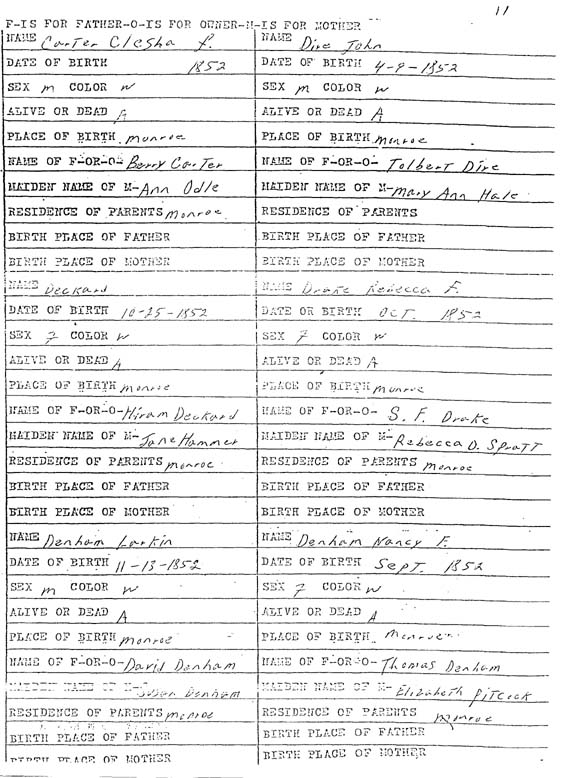 11
F-IS FOR FATHER-O-IS FOR OWNER-M-IS FOR MOTHER
NAME Carter Clesha f.
DATE OF BIRTH 1852
SEX m COLOR w
ALIVE OR DEAD A
PLACE OF BIRTH monroe
NAME OF F-OR-O- Berry Carter
MAIDEN NAME OF M- Ann Odle
RESIDENCE OF PARENTS monroe
BIRTH PLACE OF FATHER
BIRTH PLACE OF MOTHER
NAME Dire John
DATE OF BIRTH 4-9-1852
SEX m COLOR w
ALIVE OR DEAD A
PLACE OF BIRTH monroe
NAME OF F-OR-O- Tolbert Dire
MAIDEN NAME OF M- Mary Ann Hale
RESIDENCE OF PARENTS
BIRTH PLACE OF FATHER
BIRTH PLACE OF MOTHER
NAME Deckard
DATE OF BIRTH 10-25-1852
SEX F COLOR w
ALIVE OR DEAD A
PLACE OF BIRTH monroe
NAME OF F-OR-O- Hiram Deckard
MAIDEN NAME OF M- Jane Hammer
RESIDENCE OF PARENTS monroe
BIRTH PLACE OF FATHER
BIRTH PLACE OF MOTHER
NAME Drake Rebecca F.
DATE OR BIRTH OCT. 1852
SEX F COLOR w
ALIVE OR DEAD A
PLACE OF BIRTH monroe
NAME OF F-OR-O- S. F. Drake
MAIDEN NAME OF M- Rebecca D. Spratt
RESIDENCE OF PARENTS monroe
BIRTH PLACE OF FATHER
BIRTH PLACE OF MOTHER
NAME Denham Larkin
DATE OF BIRTH 11-13-1852
SEX m COLOR w
ALIVE OR DEAD A
PLACE OF BIRTH monroe
NAME OF F-OR-O- David Denham
MAIDEN NAME OF M- Susan Denham
RESIDENCE OF PARENTS monroe
BIRTH PLACE OF FATHER
BIRTH PLACE OF MOTHER
NAME Denham Nancy F.
DATE OF BIRTH Sept. 1852
SEX F COLOR w
ALIVE OR DEAD A
PLACE OF BIRTH monroe
NAME OF F-OR-O- Thomas Denham
MAIDEN NAME OF M- Elizabeth Pitcock
RESIDENCE OF PARENTS monroe
BIRTH PLACE OF FATHER
BIRTH PLACE OF MOTHER